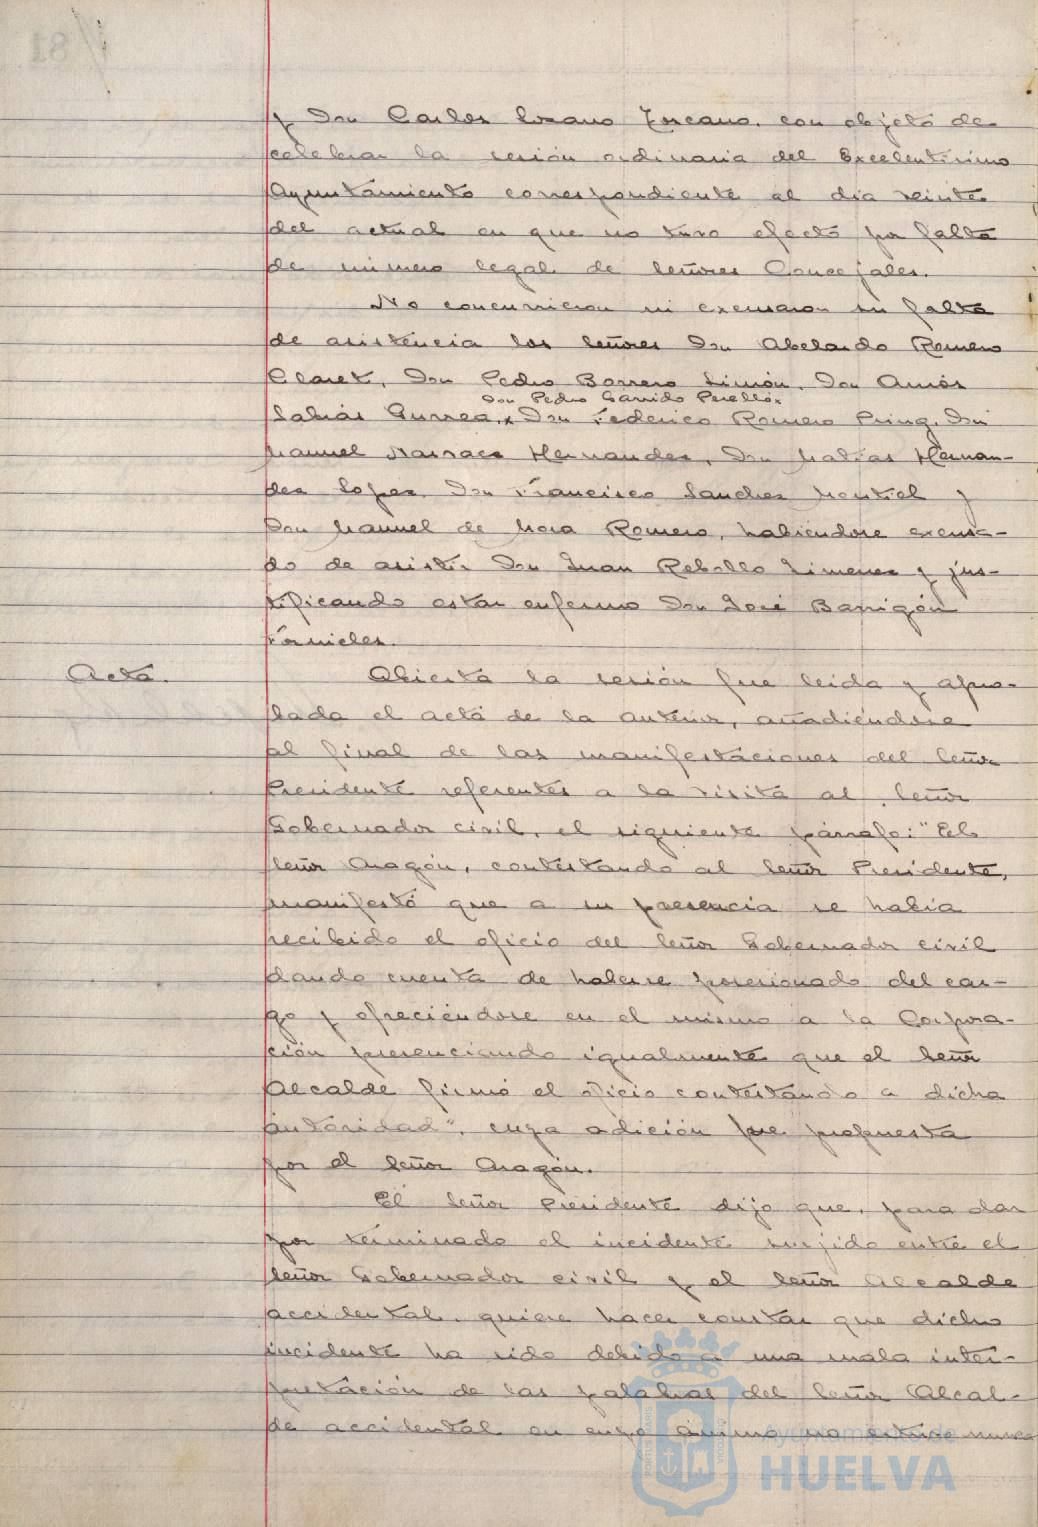 y Don Carlos Lozano Toscano, con objeto de
celebrar la sesión ordinaria del Excelentísimo
Ayuntamiento correspondiente al día veinte
del actual en que no tuvo efecto por falta
de número legal de Señores Concejales.
No concurrieron ni excusaron su falta
de asistencia los Señores Don Abelardo Romero
Claret, Don Pedro Borrero Limón, Don Amós
Don Pedro Garrido Perelló.
Sabrás Gurrea, x Don Federico Romero Don
Manuel Narraez Hernandez, Don Matías Hernan-
dez Lopez, Don Francisco Sanchez Montiel y
Don Manuel de Mora Romero, habiéndose excusa-
do de asistir Don Juan Rebollo Jimenez y jus-
tificando estar enfermo Don José Barrigón
Fornieles.
Acta.
Abierta la sesión fue leída y apro-
bada el acta de la anterior, añadiéndose
al final de las manifestaciones del Señor
Presidente referentes a la visita al Señor
Gobernador civil, el siguiente párrafo: "El
Señor Aragón, contestando al Señor Presidente,
manifestó que a su presencia se había
recibido el oficio del Señor Gobernador civil
dando cuenta de haberse posesionado del car-
go y ofreciéndose en el mismo a la Corpora-
ción presenciando igualmente que el Señor
Alcalde firmó el oficio contestando a dicha
autoridad", cuya adición fue propuesta
por el Señor Aragón.
El Señor Presidente dijo que, para dar
por terminado el incidente surjido entre el
Señor Gobernador civil y el Señor Alcalde
accidental, quiere hacer constar que dicho
incidente ha sido debido a una mala inter-
pretación de las palabras del Señor Alcal-
de accidental en cuyo ánimo no estuvo nunca
Ayuntamiento de
HUELVA
81